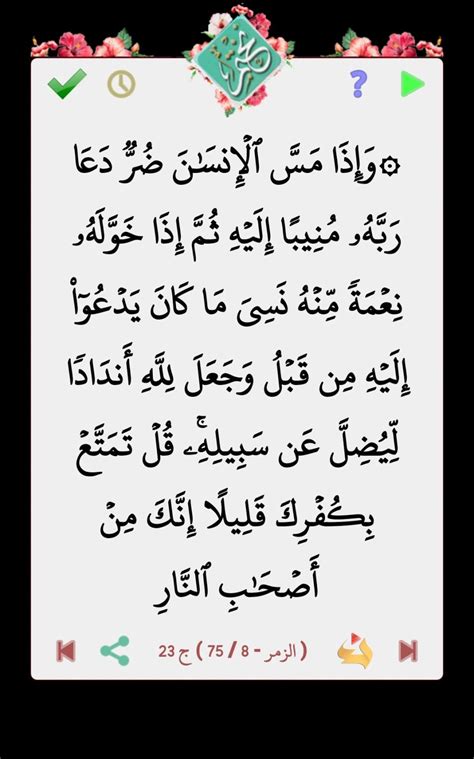 ۞وَإِذَا مَسَّ ٱلۡإِنسَٰنَ ضُرّٞ دَعَا
رَبَّهُۥ مُنِيبًا إِلَيۡهِ ثُمَّ إِذَا خَوَّلَهُۥ
نِعۡمَةٗ مِّنۡهُ نَسِيَ مَا كَانَ يَدۡعُوٓاْ
إِلَيۡهِ مِن قَبۡلُ وَجَعَلَ لِلَّهِ أَندَادٗا
لِّيُضِلَّ عَن سَبِيلِهِۦۚ قُلۡ تَمَتَّعۡ
بِكُفۡرِكَ قَلِيلًا إِنَّكَ مِنۡ
أَصۡحَٰبِ ٱلنَّارِ
( الزمر - 8 / 75 ) ج 23